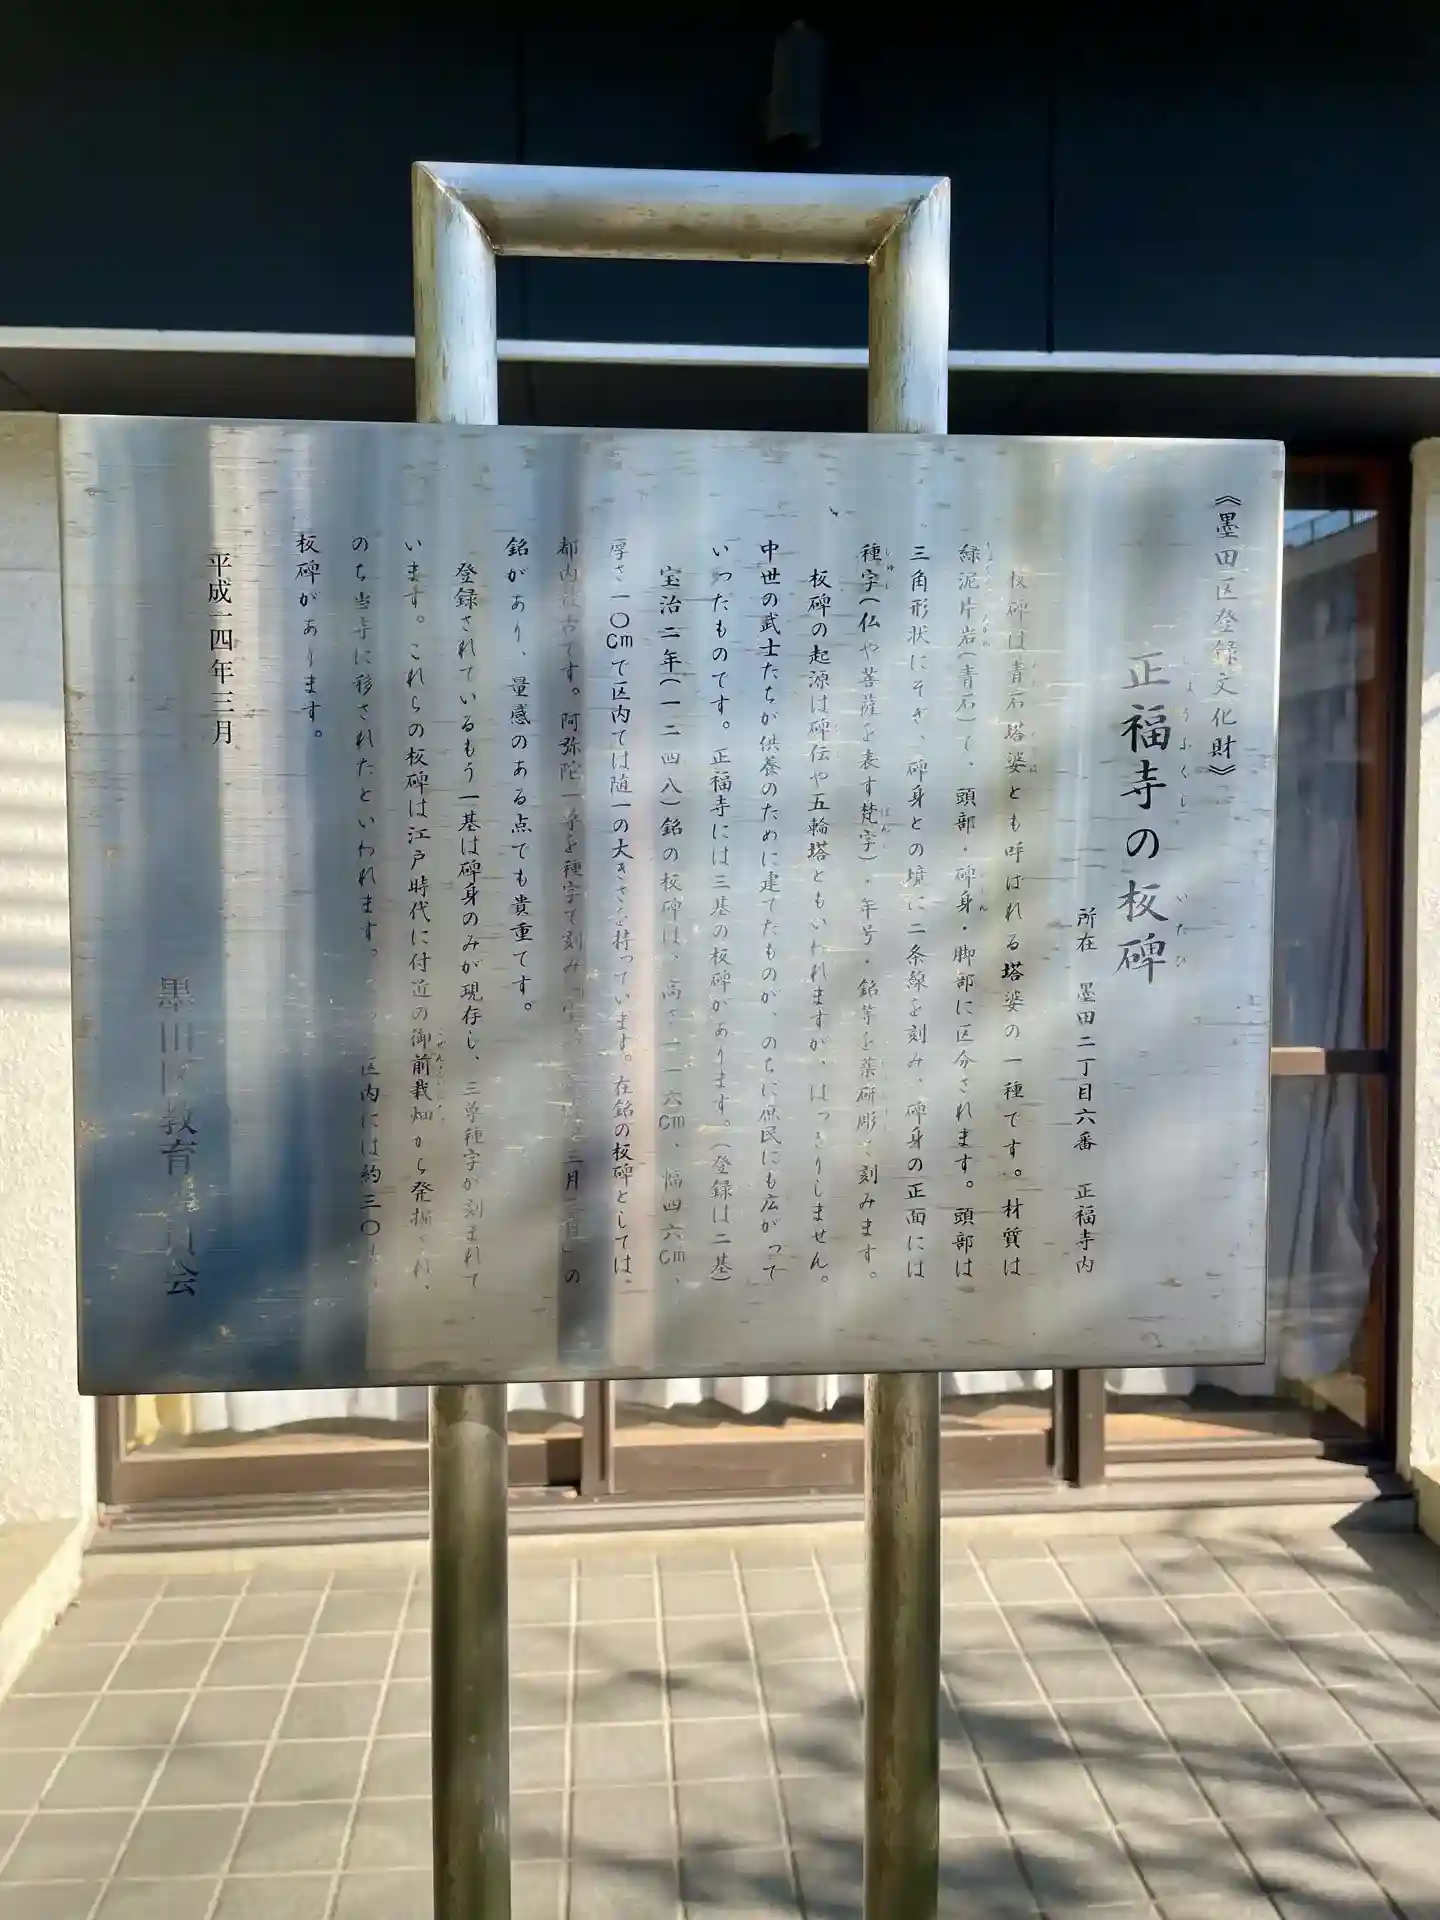 《墨田区登録文化財》
正福寺の板碑
所在 墨田二丁目六番 正福寺内
板碑は青石塔婆とも呼ばれる塔婆の一種です。材質は
緑泥片岩(青石)で、頭部・碑身・脚部に区分されます。頭部は
三角形状にそぎ、碑身との境に二条線を刻み、碑身の正面には
種字(仏や菩薩を表す梵字)・年号・銘等を薬研彫で刻みます。
板碑の起源は碑伝や五輪塔ともいわれますが、はっきりしません。
中世の武士たちが供養のために建てたものが、のちに庶民にも広がって
いったものです。正福寺には三基の板碑があります。(登録は二基)
宝治二年(一二四八)銘の板碑は、高さ一一六cm、幅四六cm、
厚さ一〇cmで区内では随一の大きさを持っています。在銘の板碑としては、
都内最古です。阿弥陀一尊を種字で刻み「宝 三月 日」の
銘があり、量感のある点でも貴重です。
登録されているもう一基は碑身のみが現存し、三尊種字が刻まれて
います。これらの板碑は江戸時代に付近の御前栽畑から発掘され、
のち当寺に移されたといわれます。 区内には約三〇
板碑があります。
平成一四年三月
墨田区教育委員会